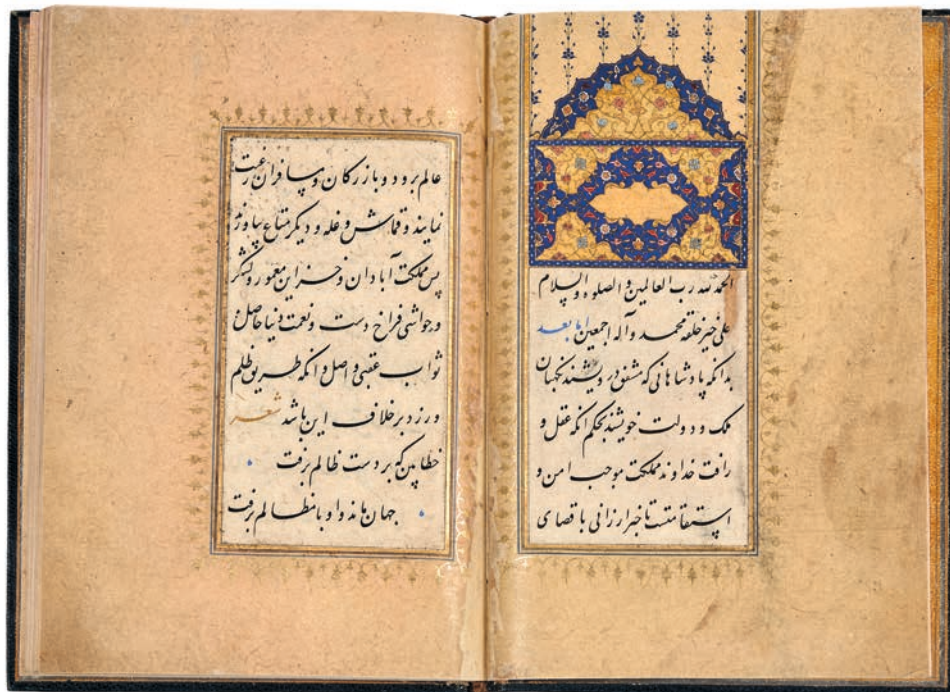 الحمد لله رب العالمین و الصلوه و السلام
علی خیر خلقه محمد و آله اجمعین اما بعد
بدانکه پادشاهانی که مشفق درویشند نکهبان
ملک و دولت خویشند بحکم آنکه عقل و
رافت خداوند مملکت موجب امن و
استقامتست تا خبر ارزانی باقصای
عالم برود و بازرکان و مسافران رغبت
نمایند و قماش و غله و دیکر متاع بیاورند
پس مملکت آبادان و خزاین معمور و لشکر
و حواشی فراخ دست و نعمت دنیا حاصل و
ثواب عقبی واصل و آنکه طریق ظلم
ورزد برخلاف این باشد شعر
خطا بین که بر دست ظالم برفت
جهان ماند و او با مظالم برفت